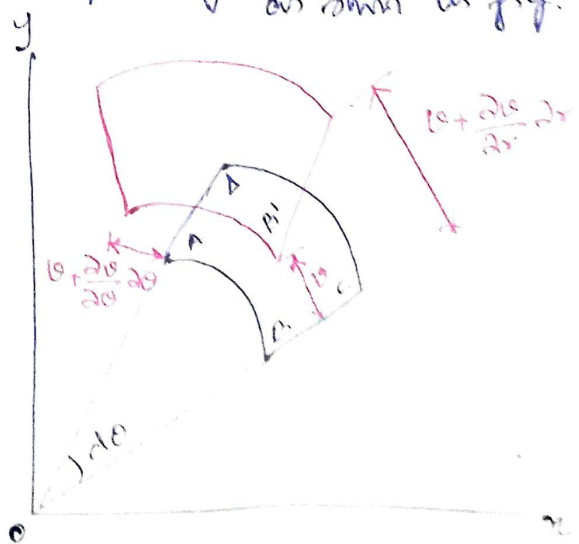 as shown in fig.
y
D
v + ∂v/∂r ∂r
A
B'
v + ∂v/∂θ ∂θ
v
C
B
dθ
O
x